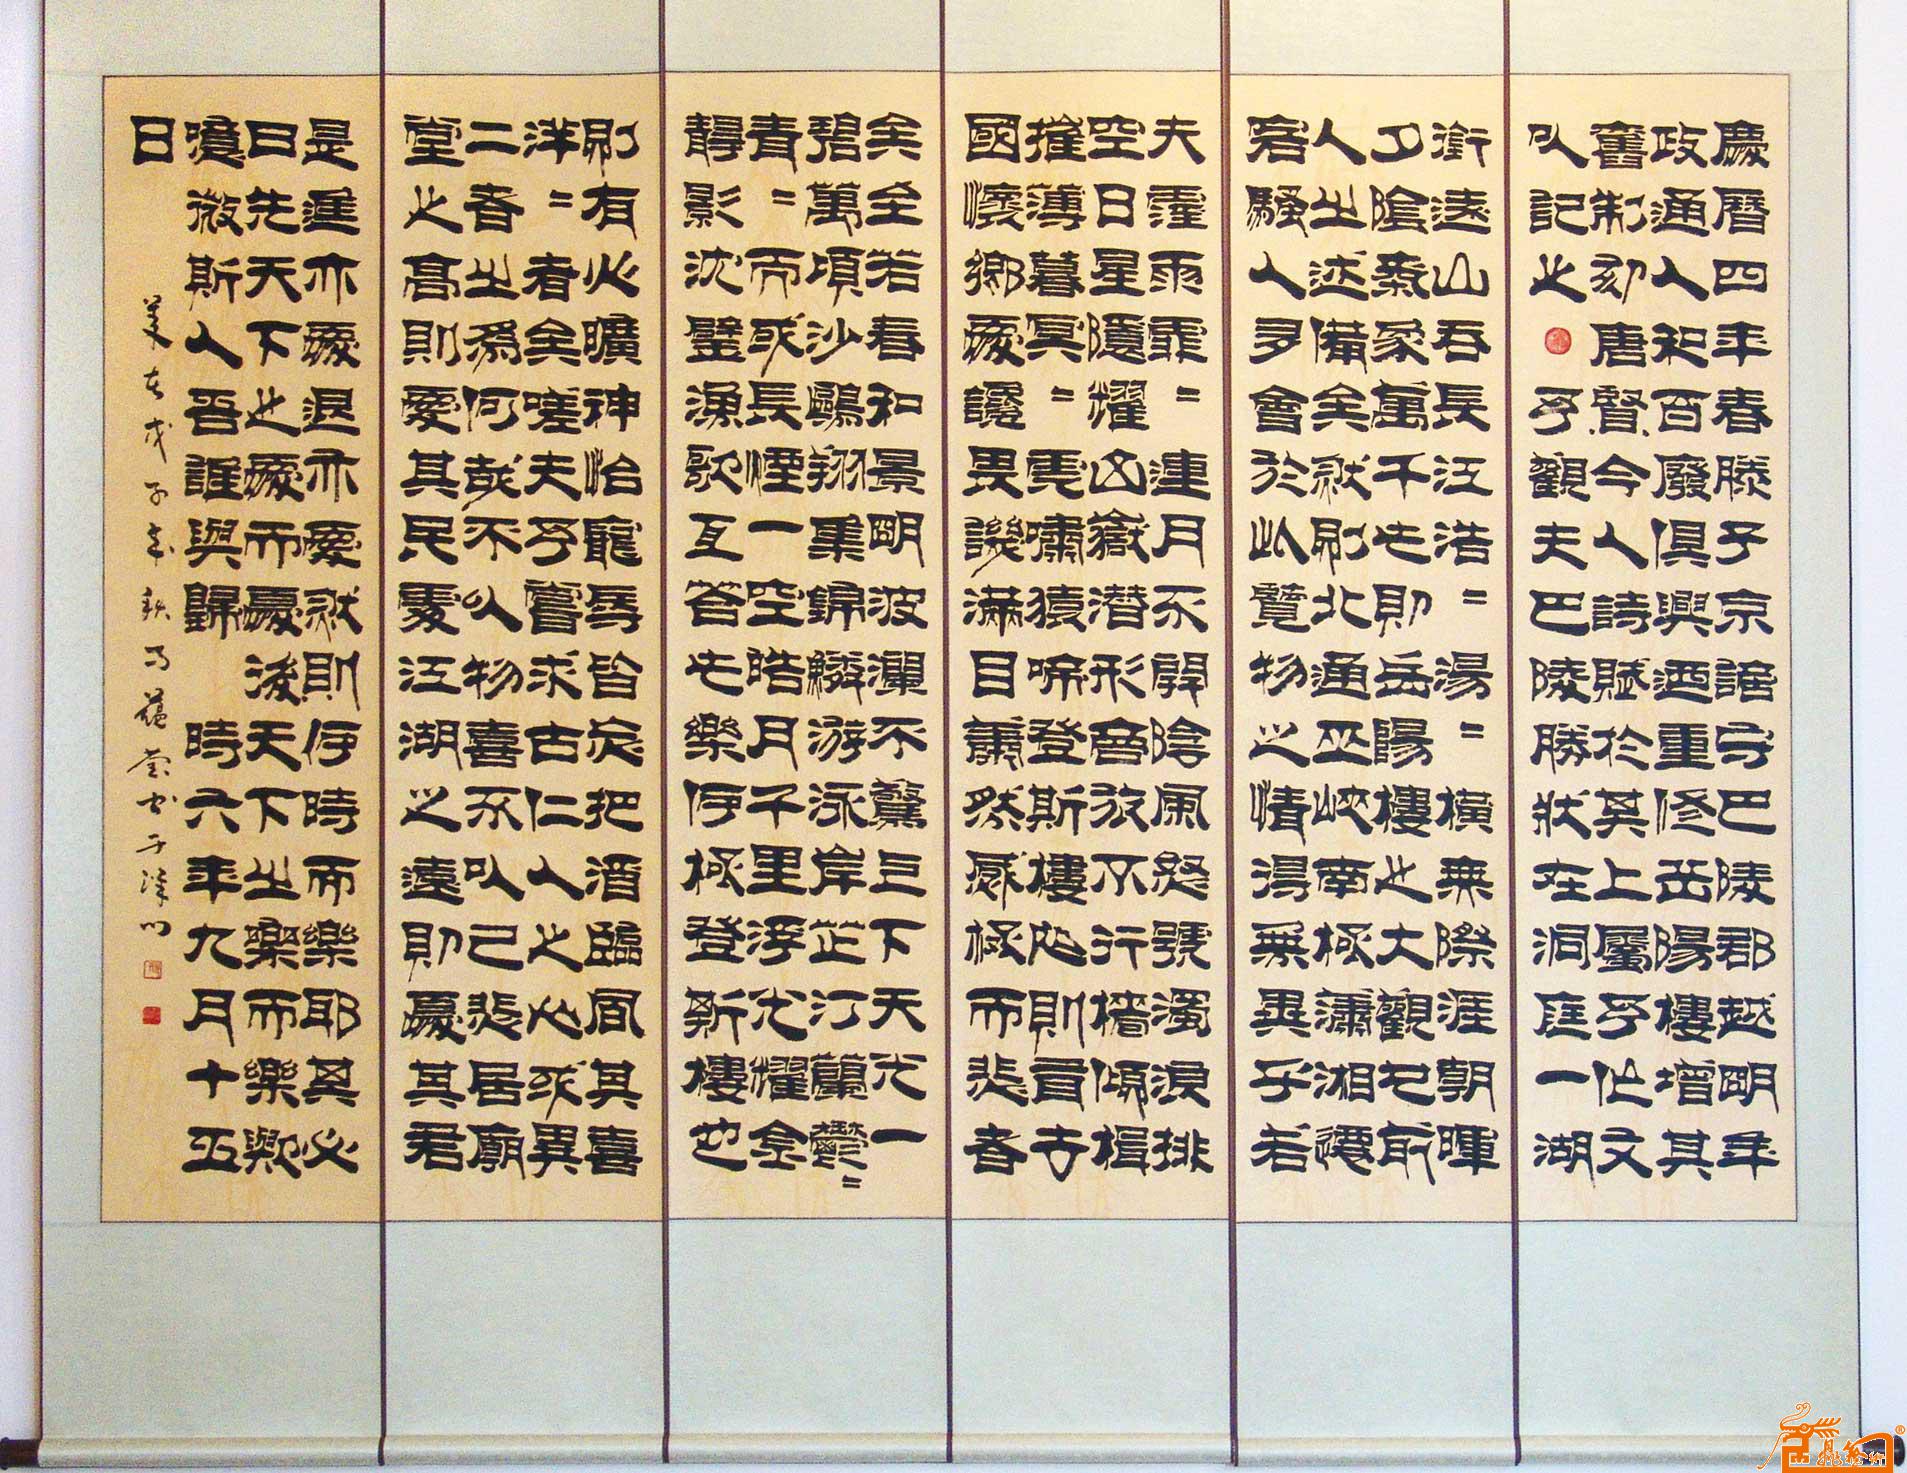 慶曆四年春滕子京謫守巴陵郡越明年
政通人和百廢俱興迺重修岳陽樓增其
舊制刻唐賢今人詩賦於其上屬予作文
以記之予觀夫巴陵勝狀在洞庭一湖
銜遠山吞長江浩=湯=橫無際涯朝暉
夕陰氣象萬千此則岳陽樓之大觀也前
人之述備矣然則北通巫峽南極瀟湘遷
客騷人多會於此覽物之情得無異乎若
夫霪雨霏=連月不開陰風怒號濁浪排
空日星隱耀山嶽潛形商旅不行檣傾楫
摧薄暮冥=虎嘯猿啼登斯樓也則有去
國懷鄉憂讒畏譏滿目蕭然感極而悲者
矣至若春和景明波瀾不驚上下天光一
碧萬頃沙鷗翔集錦鱗游泳岸芷汀蘭鬱=
青=而或長煙一空皓月千里浮光耀金
靜影沈璧漁歌互答此樂何極登斯樓也
則有心曠神怡寵辱皆忘把酒臨風其喜
洋=者矣嗟夫予嘗求古仁人之心或異
二者之為何哉不以物喜不以己悲居廟
堂之高則憂其民處江湖之遠則憂其君
是進亦憂退亦憂然則何時而樂耶其必
曰先天下之憂而憂後天下之樂而樂歟
噫微斯人吾誰與歸時六年九月十五
日
在戊子年秋馮書于津門